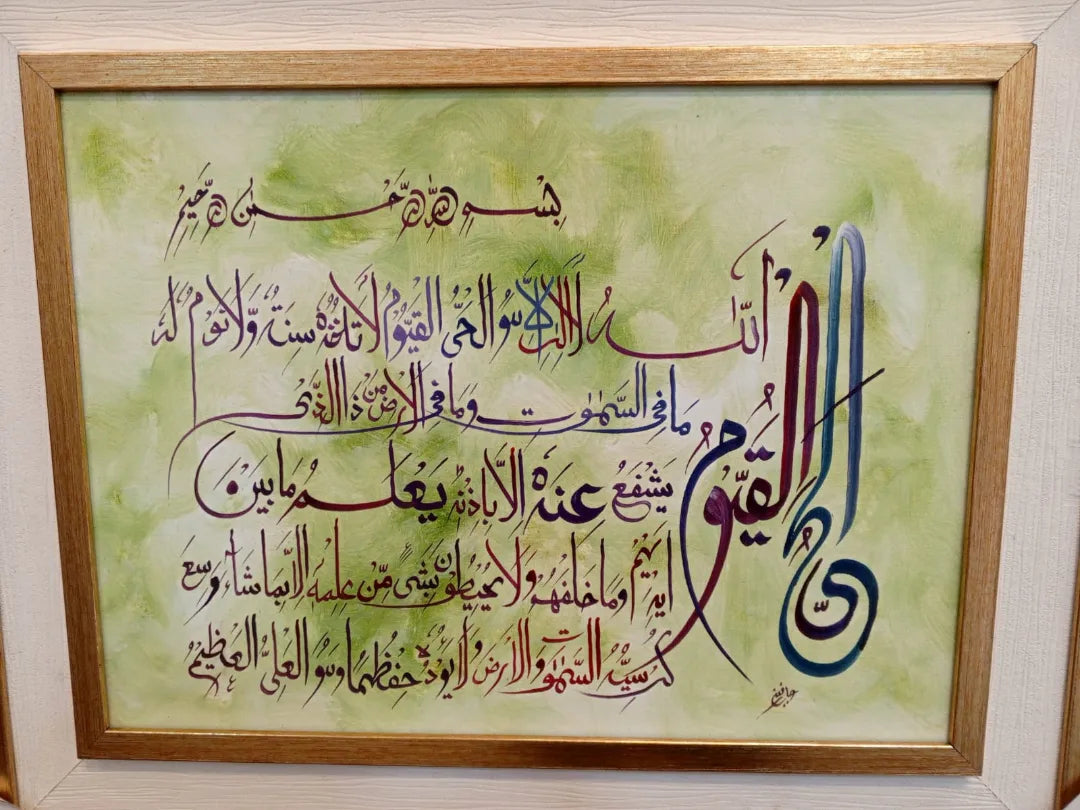 بِسْمِ اللهِ الرَّحْمٰنِ الرَّحِيْمِ
اَللّٰهُ لَا اِلٰهَ اِلَّا هُوَ الْحَىُّ الْقَيُّوْمُ لَا تَاْخُذُهٗ سِنَةٌ وَّلَا نَوْمٌ لَهٗ
مَا فِى السَّمٰوٰتِ وَمَا فِى الْاَرْضِ مَنْ ذَا الَّذِىْ
يَشْفَعُ عِنْدَهٗ اِلَّا بِاِذْنِهٖ يَعْلَمُ مَا بَيْنَ
اَيْدِيْهِمْ وَمَا خَلْفَهُمْ وَلَا يُحِيْطُوْنَ بِشَىْءٍ مِّنْ عِلْمِهٖ اِلَّا بِمَا شَآءَ وَسِعَ
كُرْسِيُّهُ السَّمٰوٰتِ وَالْاَرْضَ وَلَا يَؤُدُهٗ حِفْظُهُمَا وَهُوَ الْعَلِىُّ الْعَظِيْمُ
الْحَىُّ
الْقَيُّوْمُ